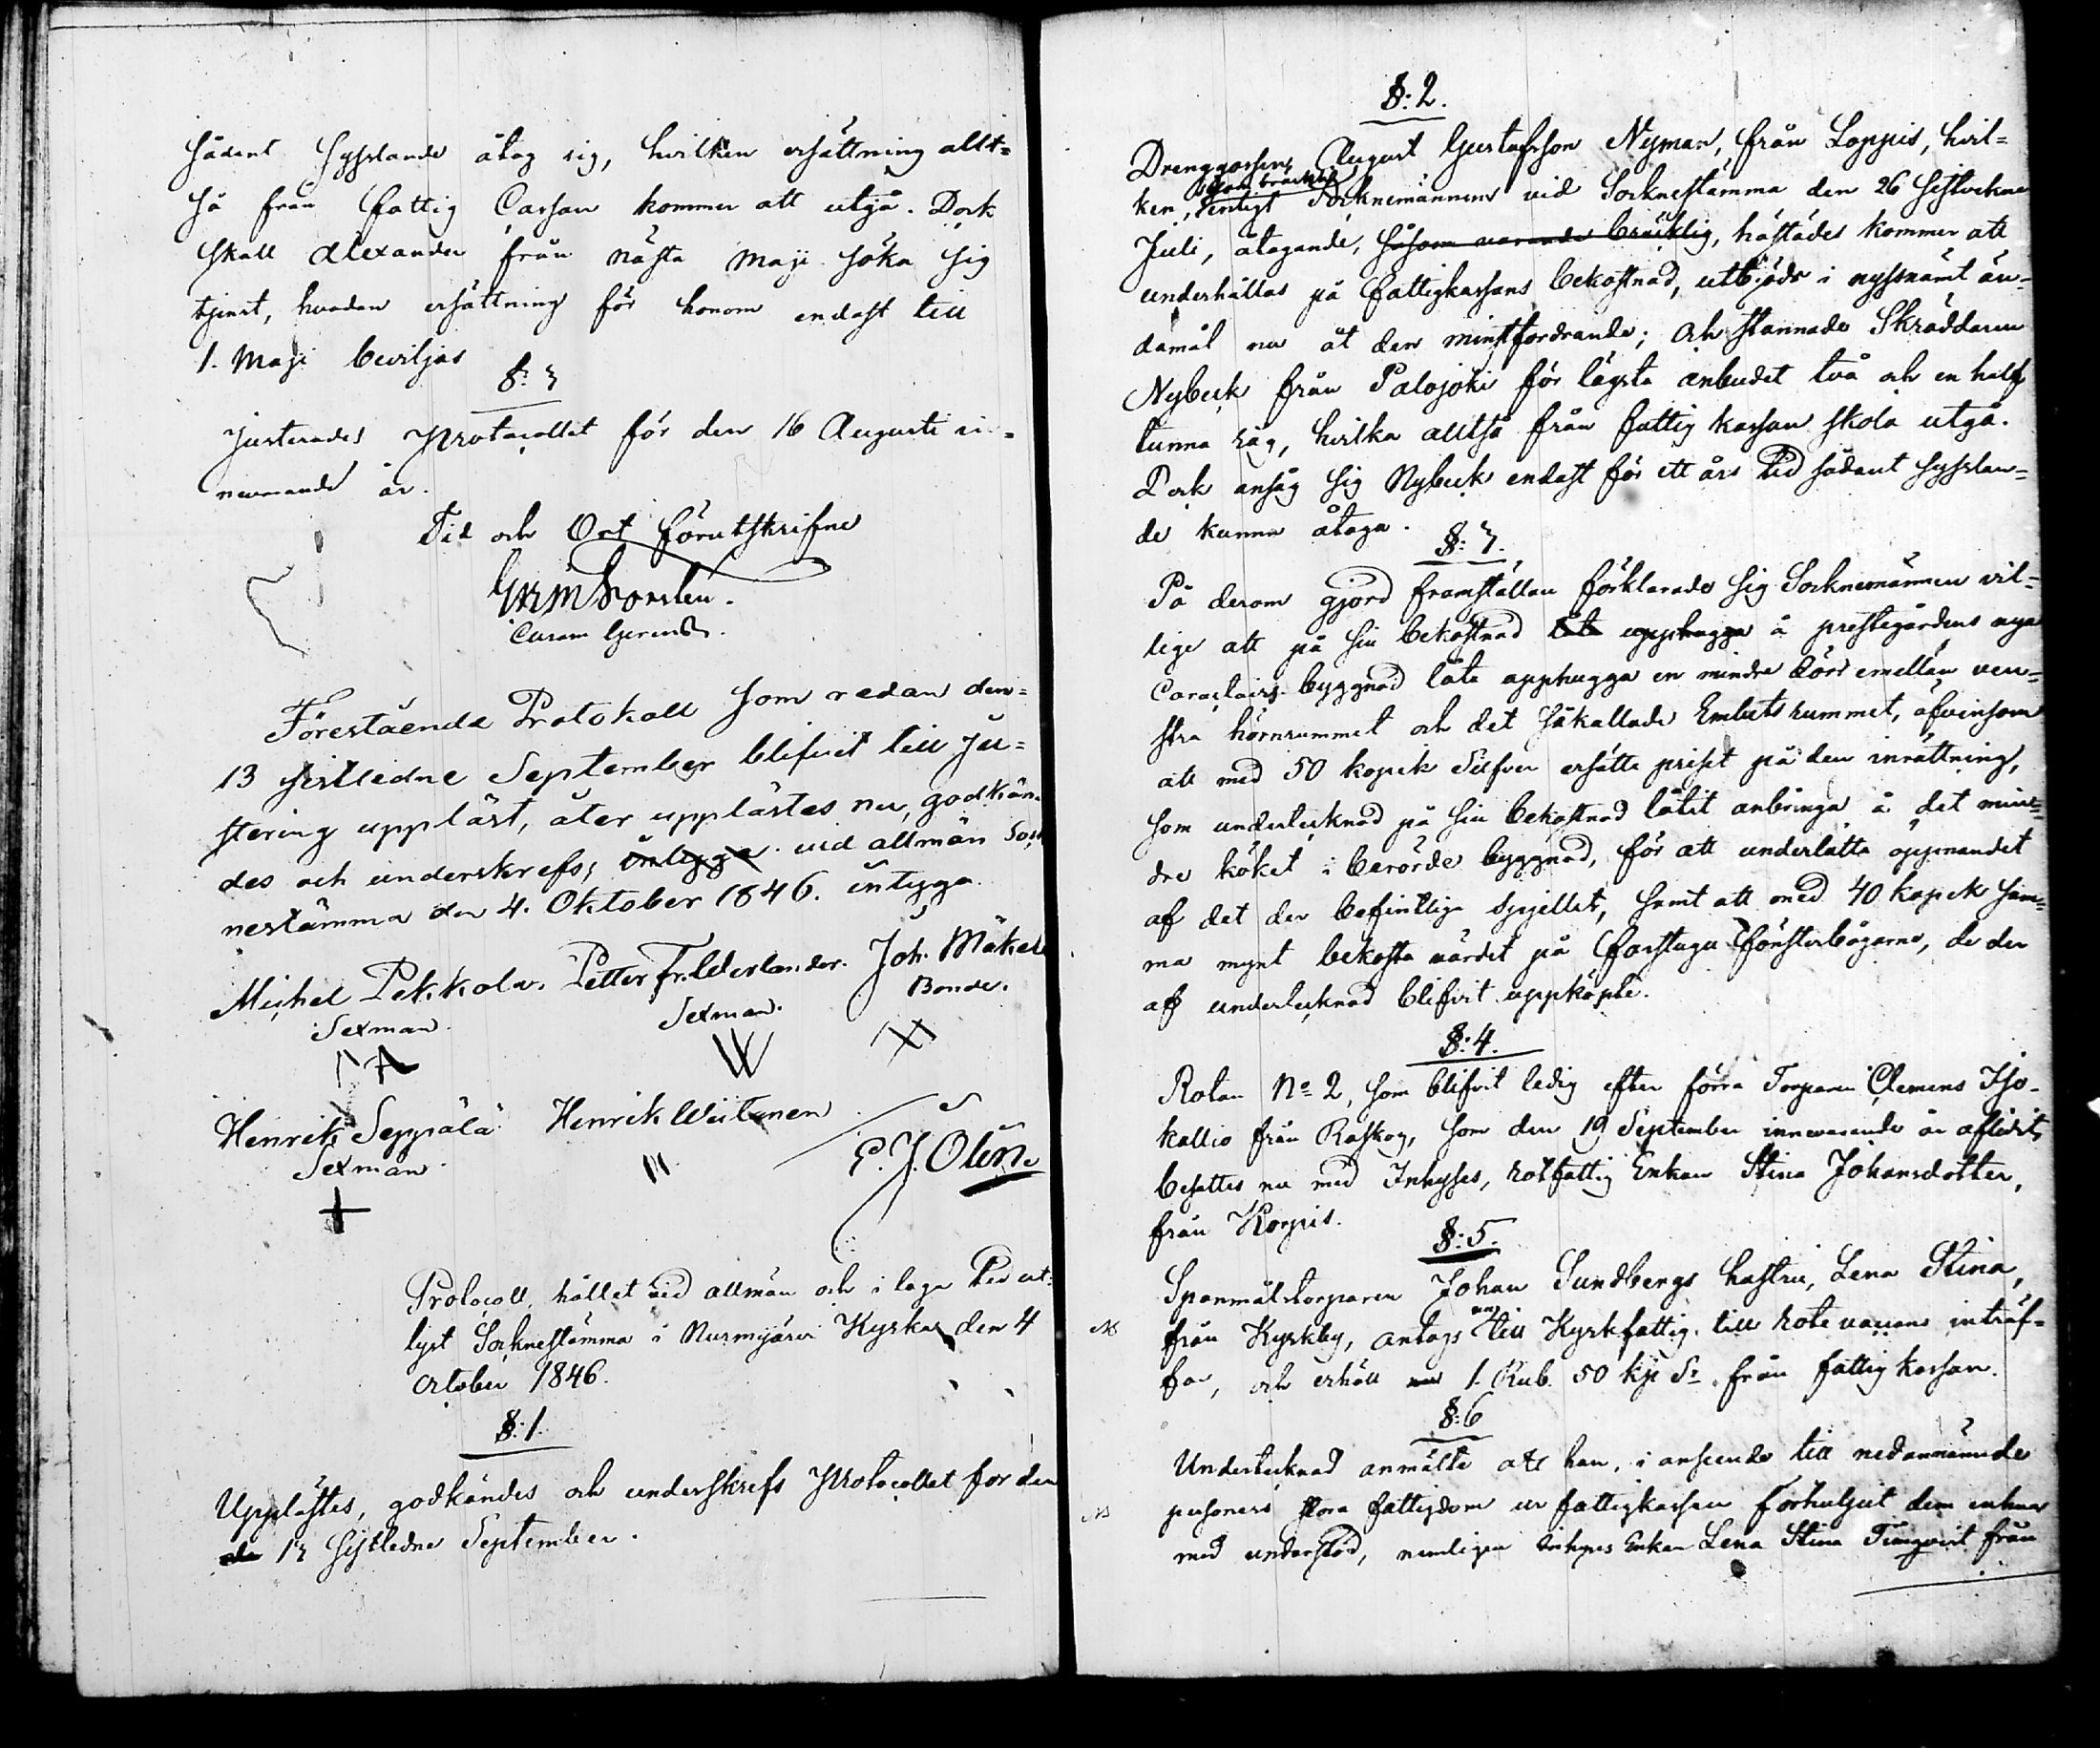 sådant sysslande åtog sig, hvilken ersättning allt=
så från fattig Cassan kommer att utgå. Dock
skall Alexander från nästa Maji söka sig
tjenst, hvadan ersättning för honom endast till
1. Maji beviljas
§: 3
Justerades Protocollet för den 16 Augusti in=
nevarande år.
Tid och Ort förutskrifne
Förestående Protokoll som redan den=
13 sistledne September blifvit till Ju=
stering uppläst, åter upplästes nu, godkän=
des och underskrefs; intyga vid allmän Sock
nestämma den 4. Oktober 1846. intyga
Michel Pekkola. Petter Fr. Alderlander. Joh. Mäkelä
Sexman. Sexman. Bonde.
Henrik Seppälä Henrik Weitmen
Sexman. E. J. Olin.
Protocoll, hållet vid allmän och i laga tid ut=
lyst Socknestämma i Nurmijärvi Kyrka den 4
October 1846.
§: 1.
Upplästes, godkändes och underskrefs Protocollet för den
13 sistledne September.
§: 2.
Drenggossen August Gustafsson Nyman, från Loppis, hvil=
såsom bräcklig
ken, enligt Socknemännens vid Socknestämma den 26 sistvekne
Juli, åtagande, såsom varande bräcklig, härstädes kommer att
underhållas på fattigkassans bekostnad, utbjöds i nyssnämt än=
damål nu åt den minstfordrande; och stannade Skräddaren
Nybeck från Palojoki för lägsta anbudet två och en half
tunna råg, hvilka alltså från fattig kassan skola utgå.
Dock ansåg sig Nybeck endast för ett års tid sådant sysslan=
de kunna åtaga.
§: 3.
På derom gjord framställan förklarade sig Socknemännen vil=
lige att på sin bekostnad låta upphugga å prestegårdens nya
Caractairs-byggnad låta upphugga en mindre dörr emellan ven=
stra hörnrummet och det såkallade Embetsrummet, äfvensom
att med 50 kopek Silfver ersätta priset på den inrättning,
som undertecknad på sin bekostnad låtit anbringa å det min=
dre köket i berörde byggnad, för att underlätta öppnandet
af det der befintliga spjellet, samt att med 40 kopek sam=
ma mynt bekosta värdet på farstugu fönsterbågarne, de der
af undertecknad blifvit uppköpte.
§: 4.
Rotan No 2, som blifvit ledig efter förra Torparen Clemens Iso-
kallio från Raskog, som den 19 September innevarande år aflidit,
besattes nu med Inhyses, rotfattig Enkan Stina Johansdotter,
från Korpis.
§: 5.
Spanmålstorparen Johan Sundbergs hustru, Lena Stina,
nu
från Kyrkby, antogs till Kyrkfattig, till rote vacans inträf=
far, och erhöll nu 1. Rub. 50 kp Sr från fattig kassan.
§: 6
Undertecknad anmälte att han, i anseende till nedannämnde
personers stora fattigdom ur fattigkassan förhulpit dem enhvar
med understöd, nemligen Inhyses Enkan Lena Stina Timqvist från